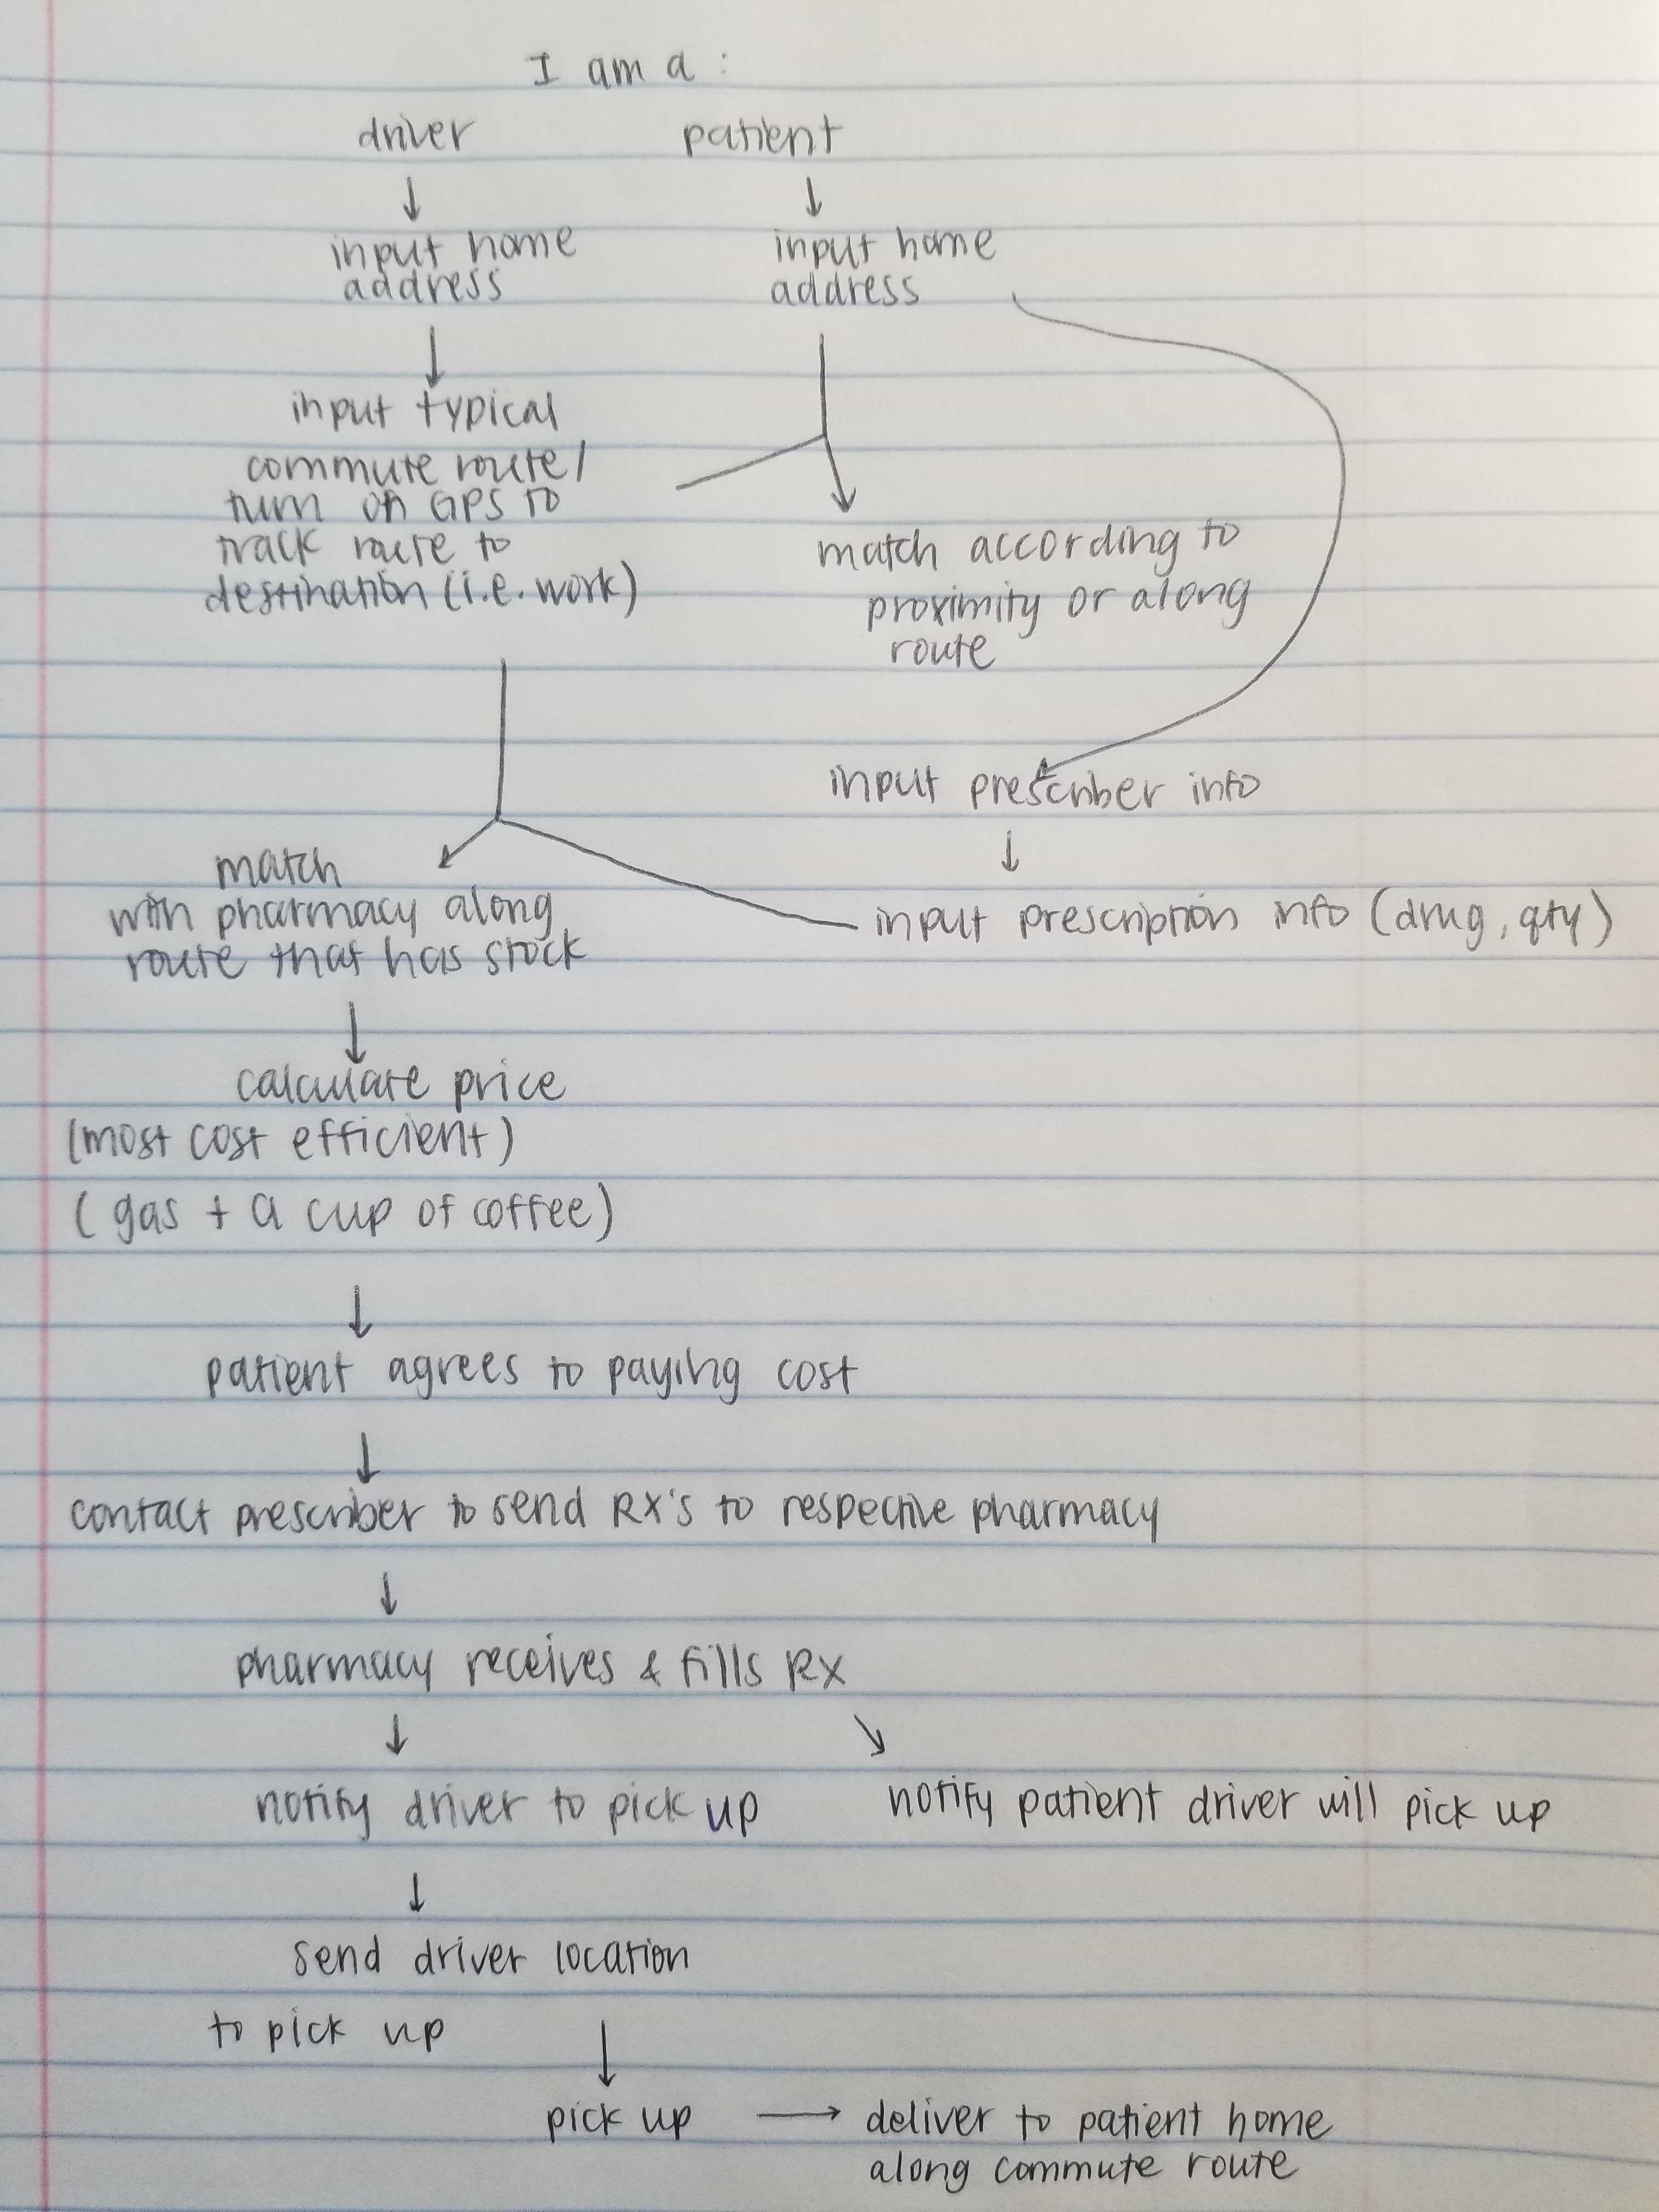 I am a :
driver patient
↓ ↓
input home input home
address address
↓
input typical
commute route/
turn on GPS to
track route to
destination (i.e. work)
match according to
proximity or along
route
input prescriber info
↓
match
with pharmacy along
route that has stock
input prescription info (drug, qty)
↓
calculate price
(most cost efficient)
( gas + a cup of coffee)
↓
patient agrees to paying cost
↓
contact prescriber to send RX's to respective pharmacy
↓
pharmacy receives & fills RX
↓ ↘
notify driver to pick up notify patient driver will pick up
↓
send driver location
to pick up
↓
pick up → deliver to patient home
along commute route